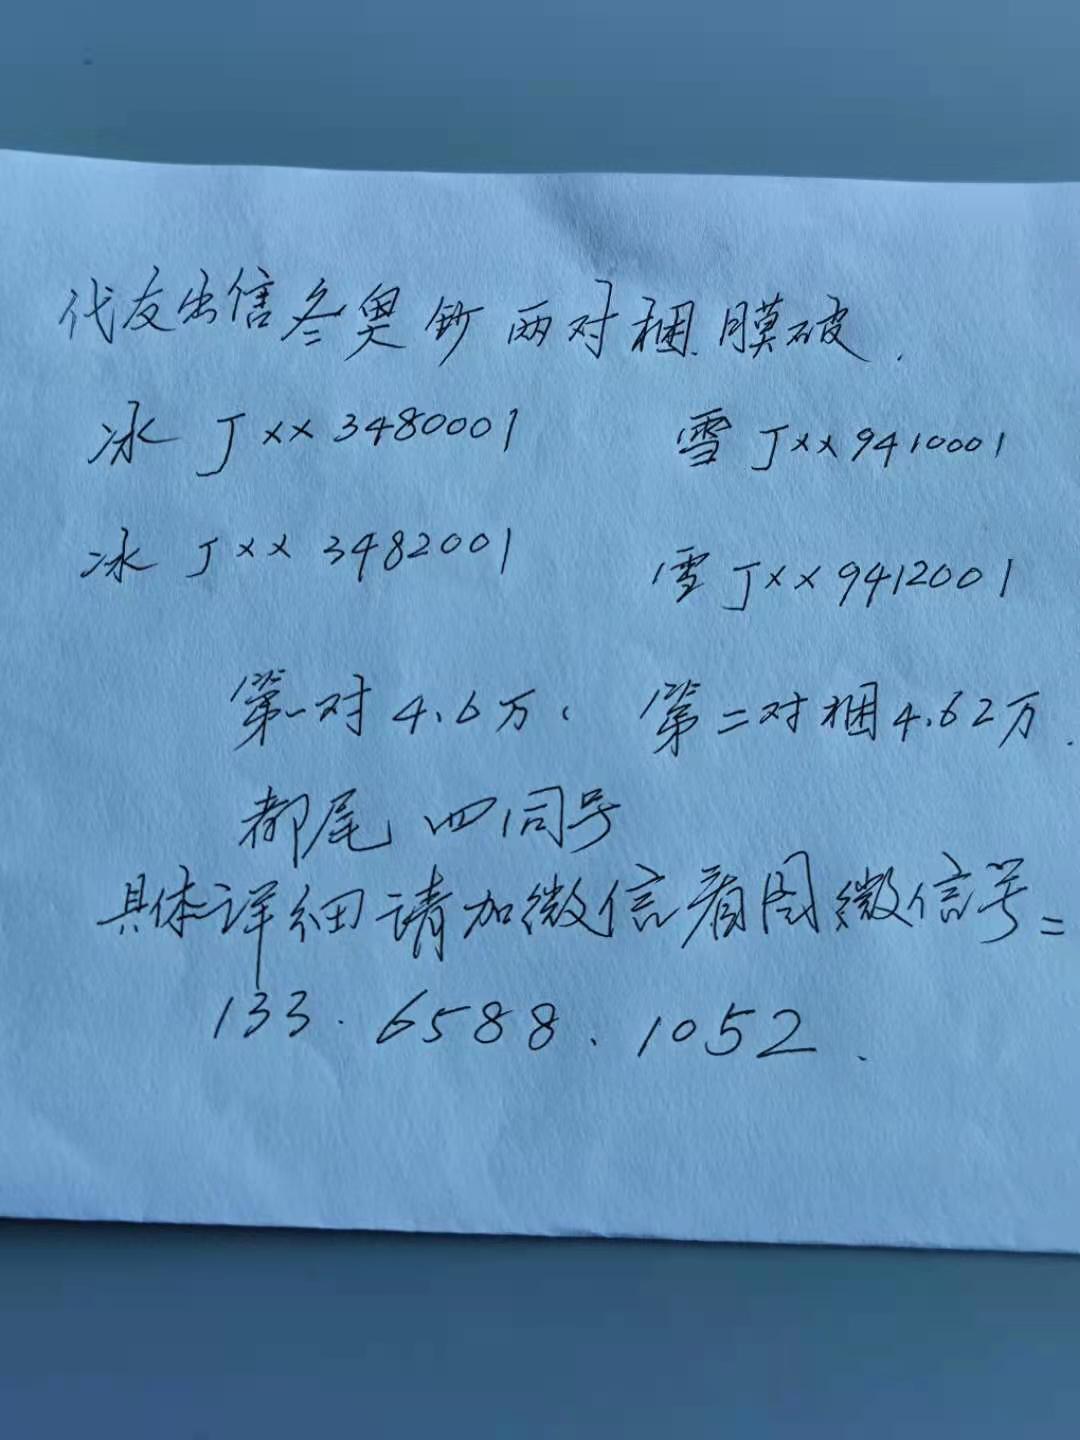 代友出售冬奥钞两对捆.膜破.
冰 J××3480001 雪J××9410001
冰 J××3482001 雪J××9412001
第一对4.6万、 第二对捆4.62万.
都尾四同号
具体详细请加微信看图微信号=
133.6588.1052.